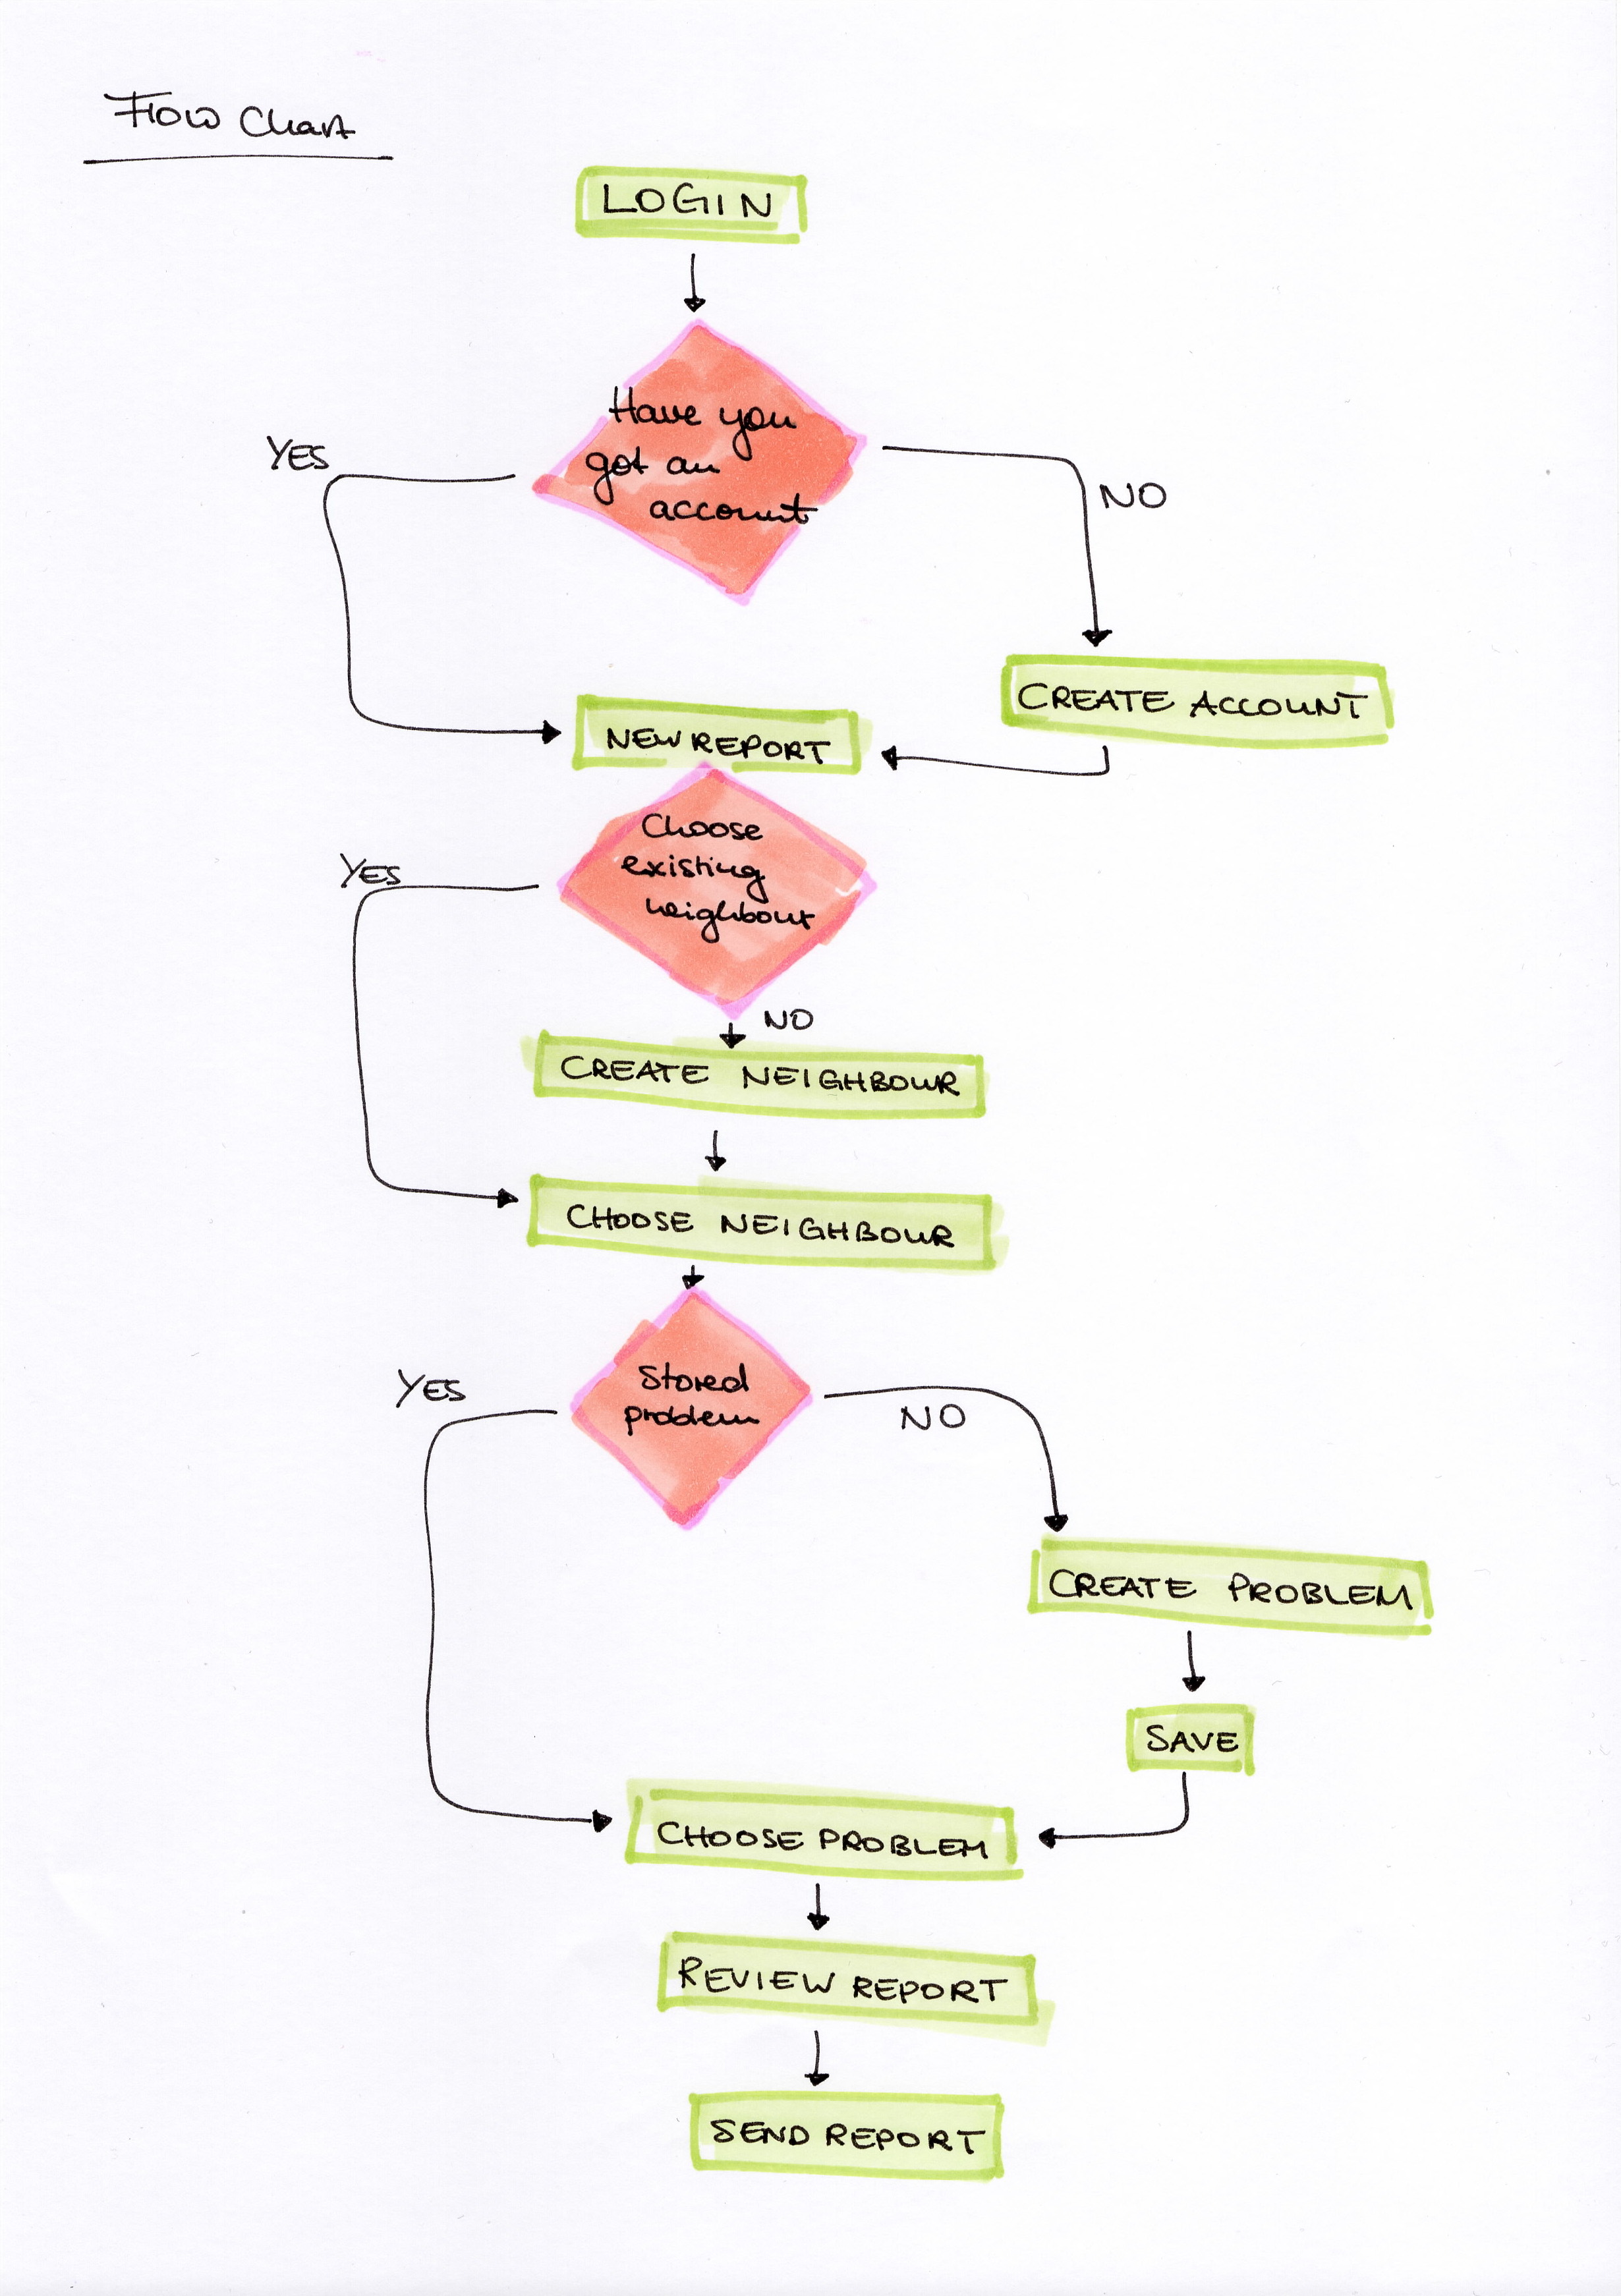 Flow Chart
LOGIN
Have you
got an
account
YES
NO
CREATE ACCOUNT
NEW REPORT
Choose
existing
neighbour
YES
NO
CREATE NEIGHBOUR
CHOOSE NEIGHBOUR
Stored
problem
YES
NO
CREATE PROBLEM
SAVE
CHOOSE PROBLEM
REVIEW REPORT
SEND REPORT